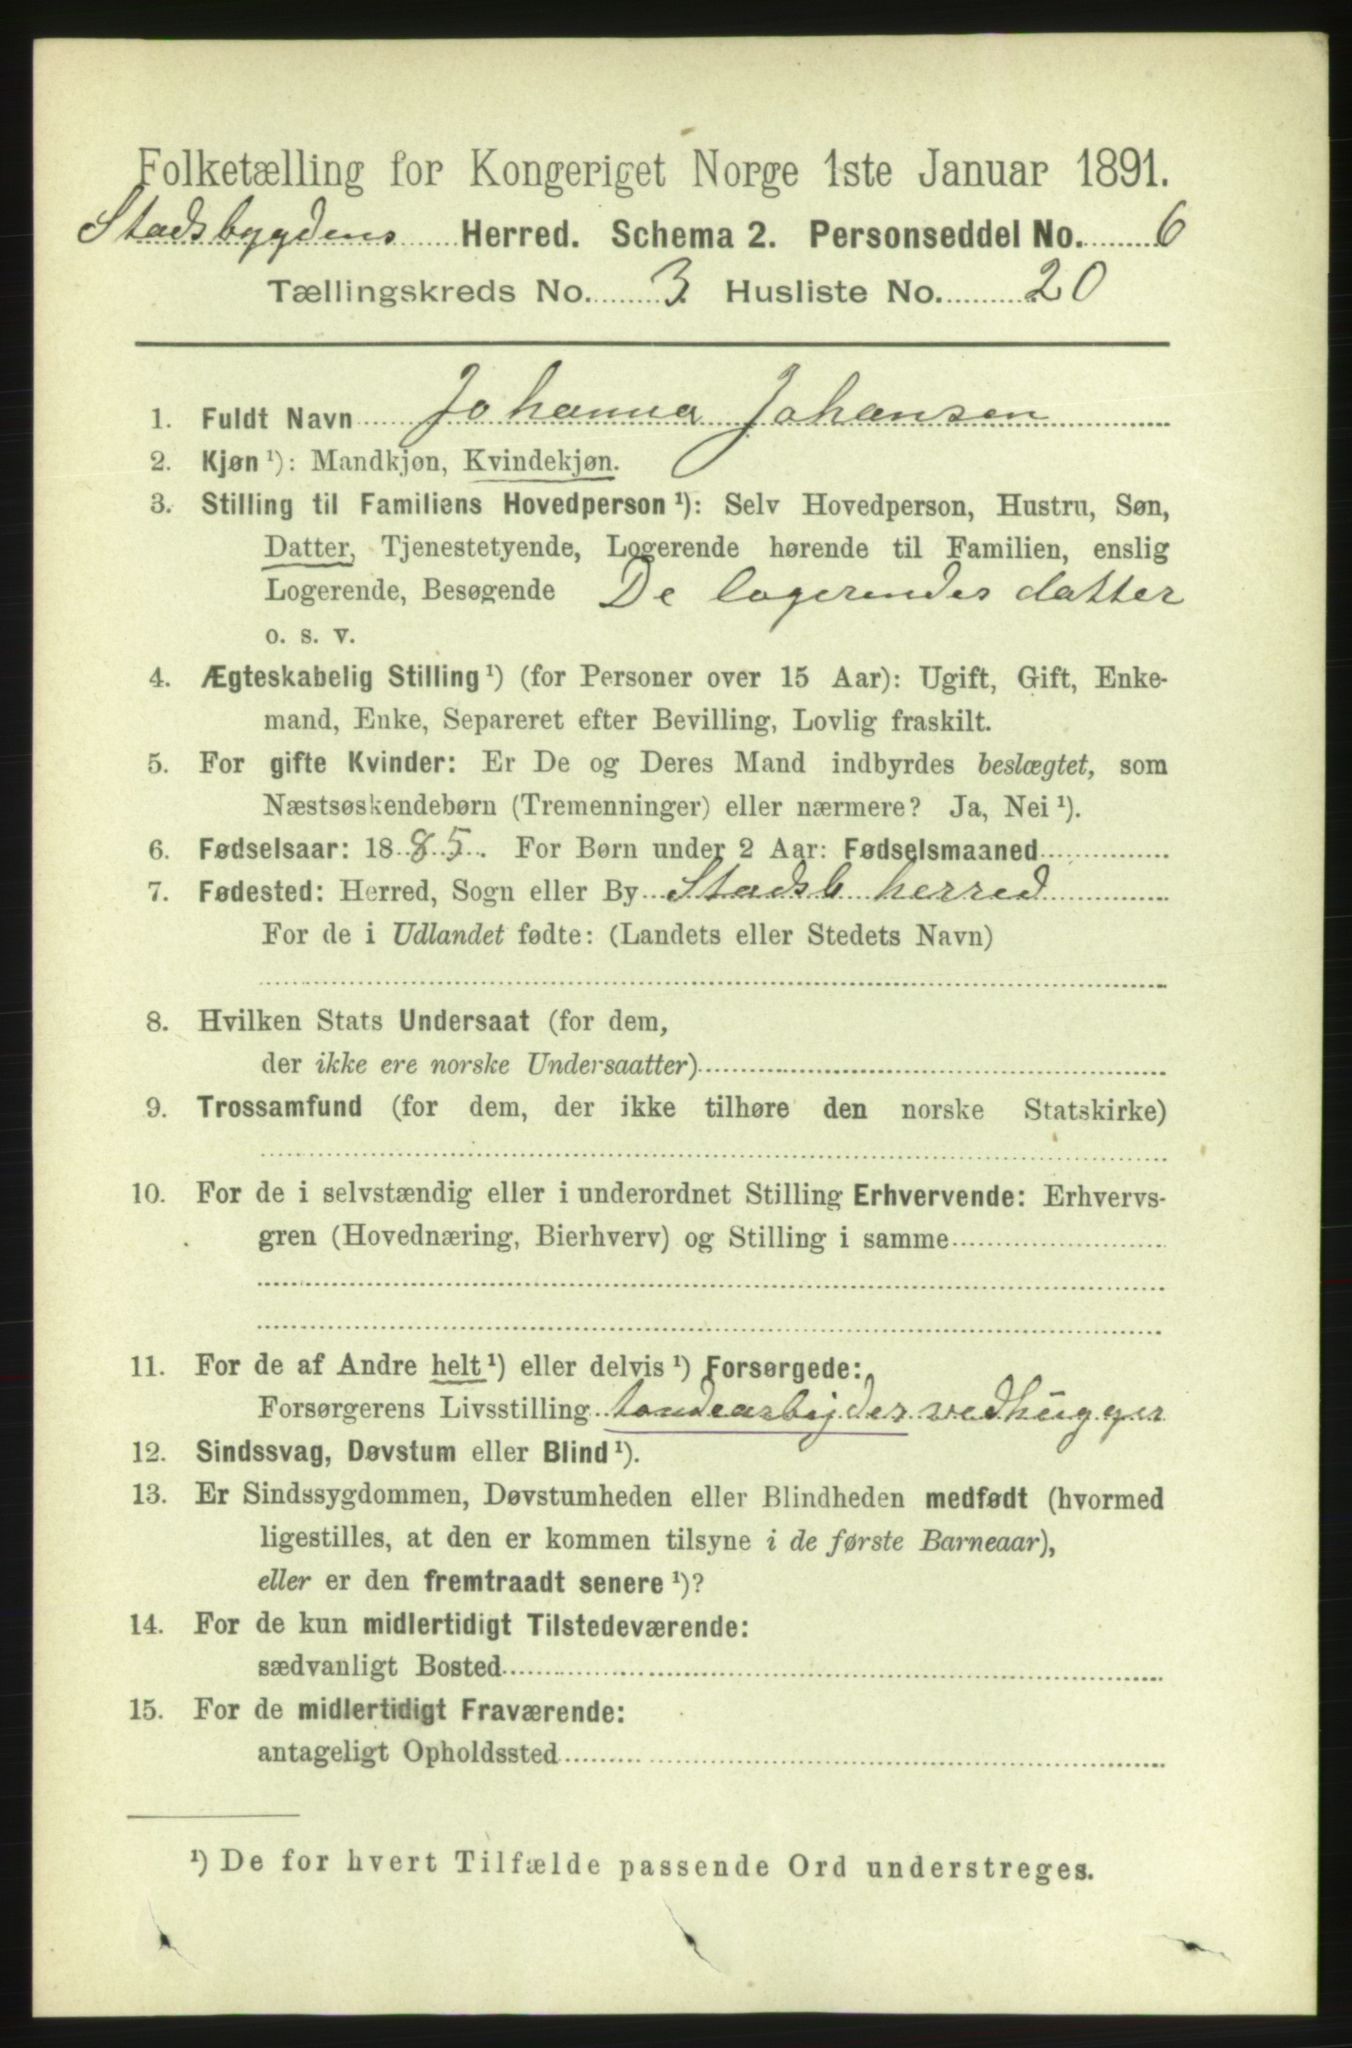 Folketælling for Kongeriget Norge 1ste Januar 1891.
Stadsbygdens Herred. Schema 2. Personseddel No. 6
Tællingskreds No. 3 Husliste No. 20
1. Fuldt Navn Johanna Johansen
2. Kjøn ¹): Mandkjøn, Kvindekjøn.
3. Stilling til Familiens Hovedperson ¹): Selv Hovedperson, Hustru, Søn,
Datter, Tjenestetyende, Logerende hørende til Familien, enslig
Logerende, Besøgende De logerendes datter
o. s. v.
4. Ægteskabelig Stilling ¹) (for Personer over 15 Aar): Ugift, Gift, Enke-
mand, Enke, Separeret efter Bevilling, Lovlig fraskilt.
5. For gifte Kvinder: Er De og Deres Mand indbyrdes beslægtet, som
Næstsøskendebørn (Tremenninger) eller nærmere? Ja, Nei ¹).
6. Fødselsaar: 1885. For Børn under 2 Aar: Fødselsmaaned
7. Fødested: Herred, Sogn eller By Stadsb herred
For de i Udlandet fødte: (Landets eller Stedets Navn)
8. Hvilken Stats Undersaat (for dem,
der ikke ere norske Undersaatter)
9. Trossamfund (for dem, der ikke tilhøre den norske Statskirke)
10. For de i selvstændig eller i underordnet Stilling Erhvervende: Erhvervs-
gren (Hovednæring, Bierhverv) og Stilling i samme
11. For de af Andre helt ¹) eller delvis ¹) Forsørgede:
Forsørgerens Livsstilling vedhugger
12. Sindssvag, Døvstum eller Blind ¹).
13. Er Sindssygdommen, Døvstumheden eller Blindheden medfødt (hvormed
ligestilles, at den er kommen tilsyne i de første Barneaar),
eller er den fremtraadt senere ¹)?
14. For de kun midlertidigt Tilstedeværende:
sædvanligt Bosted
15. For de midlertidigt Fraværende:
antageligt Opholdssted
¹) De for hvert Tilfælde passende Ord understreges.